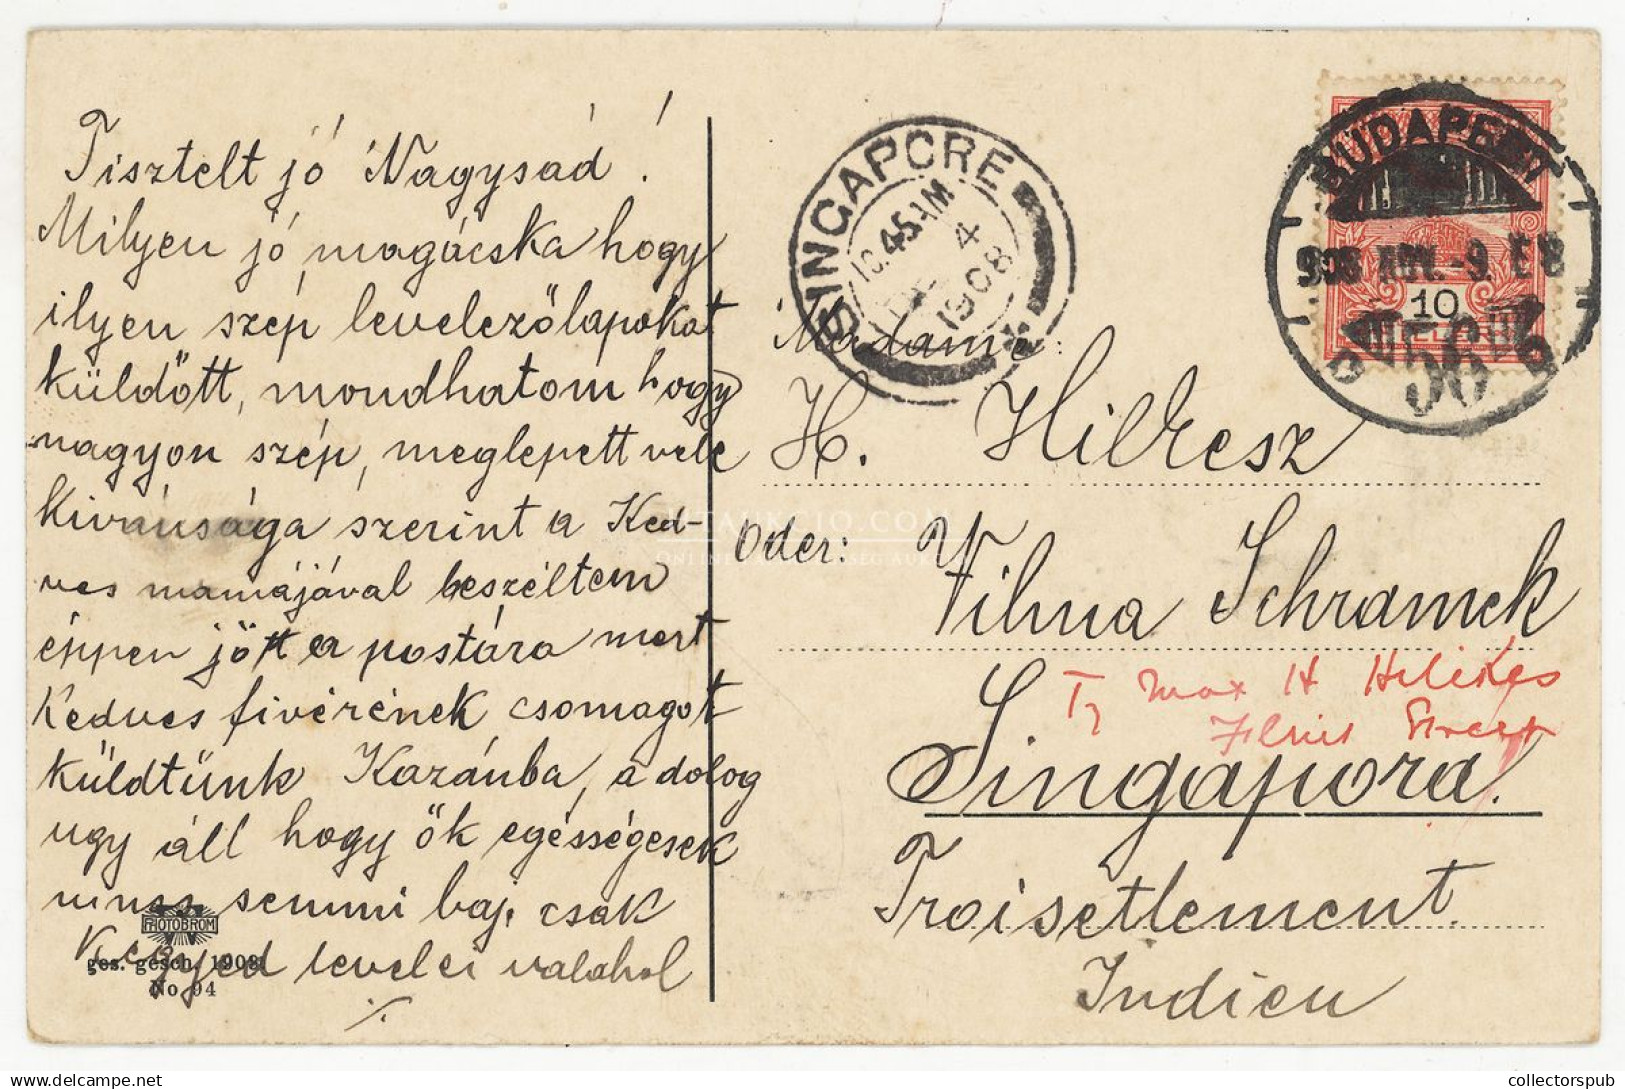 Tisztelt jó Nagysád!
Milyen jó magácska hogy
ilyen szép levelezőlapokat
küldött, mondhatom hogy
nagyon szép, meglepett vele
Kivánsága szerint a Ked-
ves mamájával beszéltem
éppen jött a postára mert
Kedves fivérének csomagot
küldtünk Kazánba, a dolog
ugy áll hogy ők egésségesek
nincs semmi baj. csak
levelei valahol
./.
PHOTOBROM
ges. gesch. 1908
No 94
SINGAPORE
10.45 AM
DE 4
1908
BUDAPEST
908 NOV. -9. E 8
10
56
Madame:
H. Hilkesz
Oder: Vilma Schramek
Max H Hilikes
Street
Singapora.
Troisetlement.
Indien
ONLINE
collectorspub